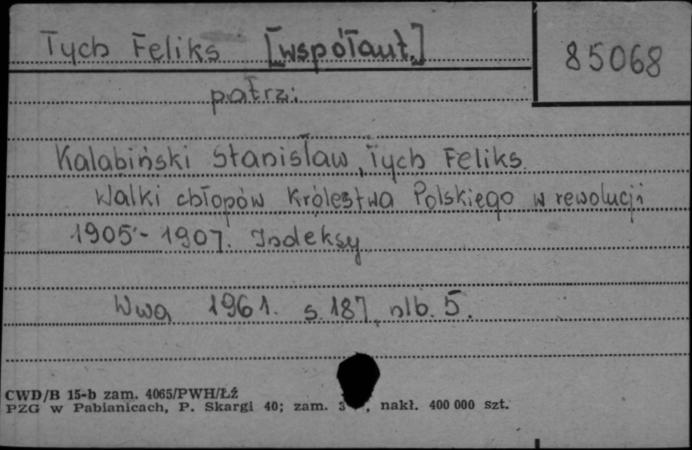 Tych Feliks [współaut.]
85068
patrz:
Kalabiński Stanisław, Tych Feliks.
Walki chłopów Królestwa Polskiego w rewolucji
1905-1907. Indeksy
Wwa 1961. s. 187, nlb. 5.
CWD/B 15-b zam. 4065/PWH/Łź
PZG w Pabianicach, P. Skargi 40; zam. 3 , nakł. 400 000 szt.